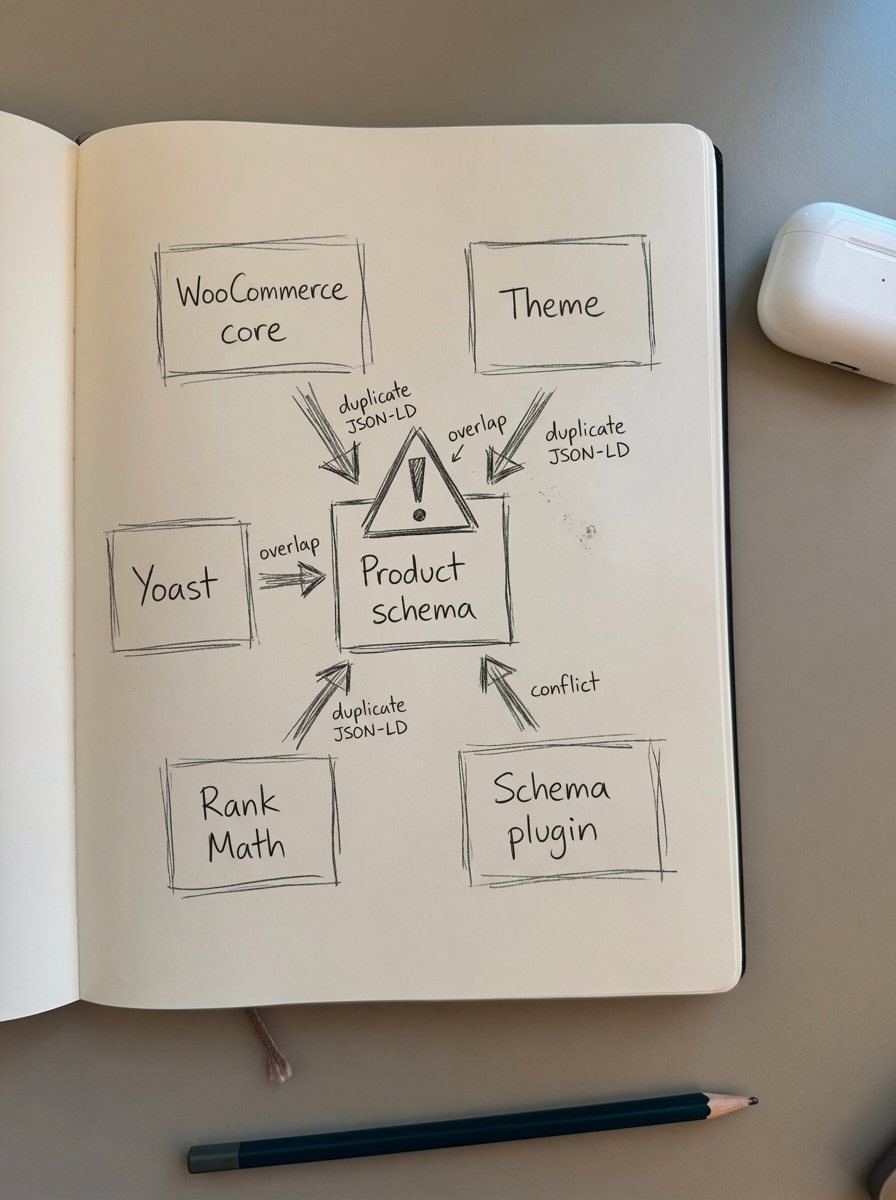 WooCommerce
core
Theme
duplicate
JSON-LD
overlap
duplicate
JSON-LD
!
Yoast
overlap
Product
schema
duplicate
JSON-LD
conflict
Rank
Math
Schema
plugin